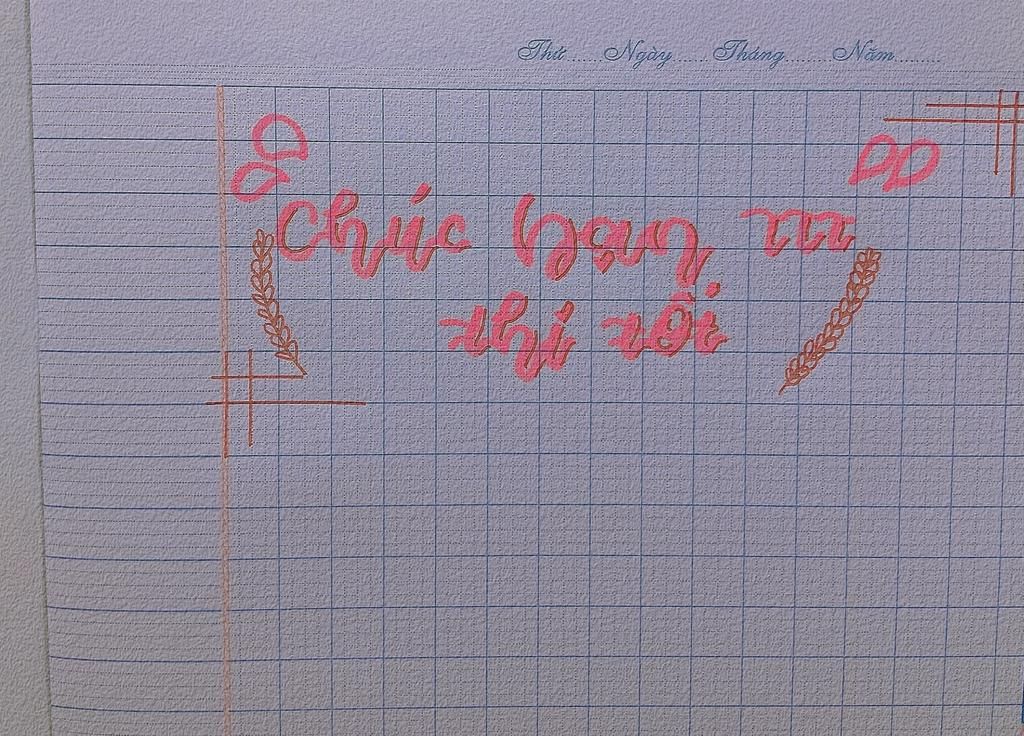 Thứ...... Ngày...... Tháng....... Năm.........
Chúc bạn
thi tốt